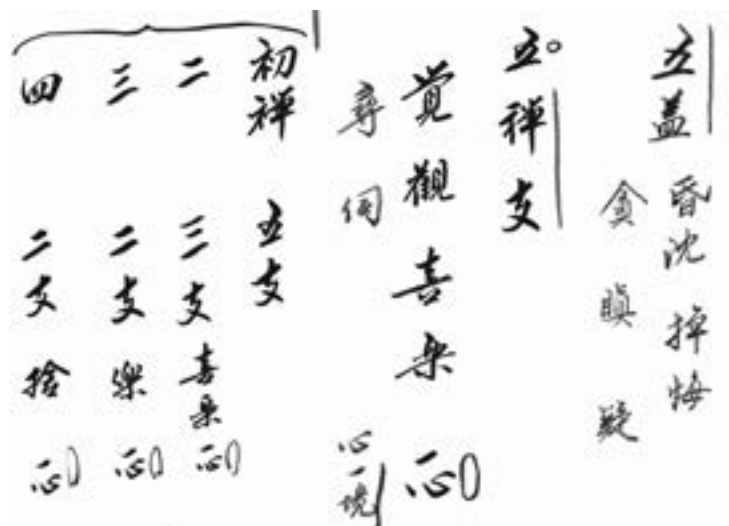 五盖 昏沈 掉悔
貪 瞋 疑
五禪支
覺觀喜樂 一心
尋伺 心一境
初禪 五支
二 三支 喜樂 一心
三 二支 樂 一心
四 二支 捨 一心